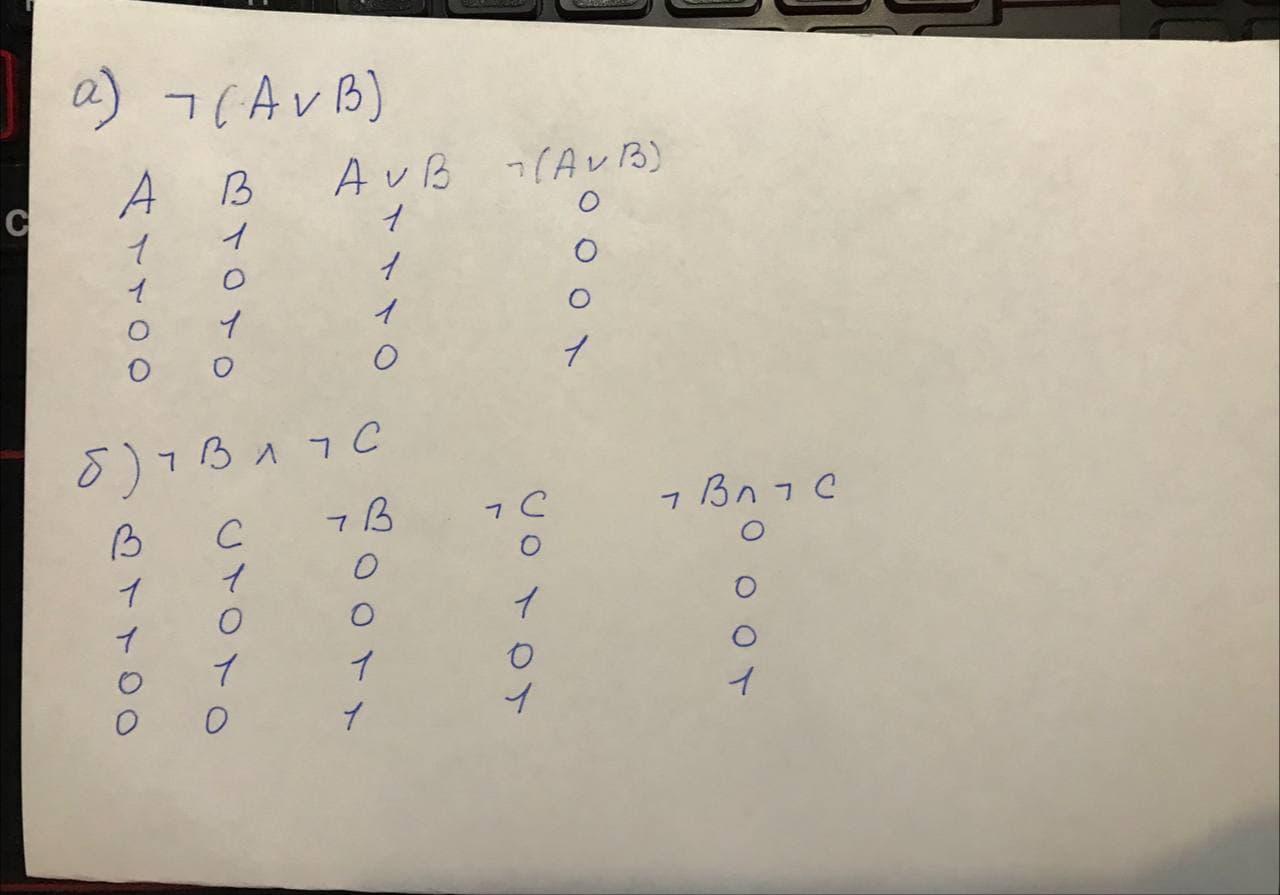 а) ¬(A ∨ B)
A B A ∨ B ¬(A ∨ B)
1 1 1 0
1 0 1 0
0 1 1 0
0 0 0 1
б) ¬B ∧ ¬C
B C ¬B ¬C ¬B ∧ ¬C
1 1 0 0 0
1 0 0 1 0
0 1 1 0 0
0 0 1 1 1
C